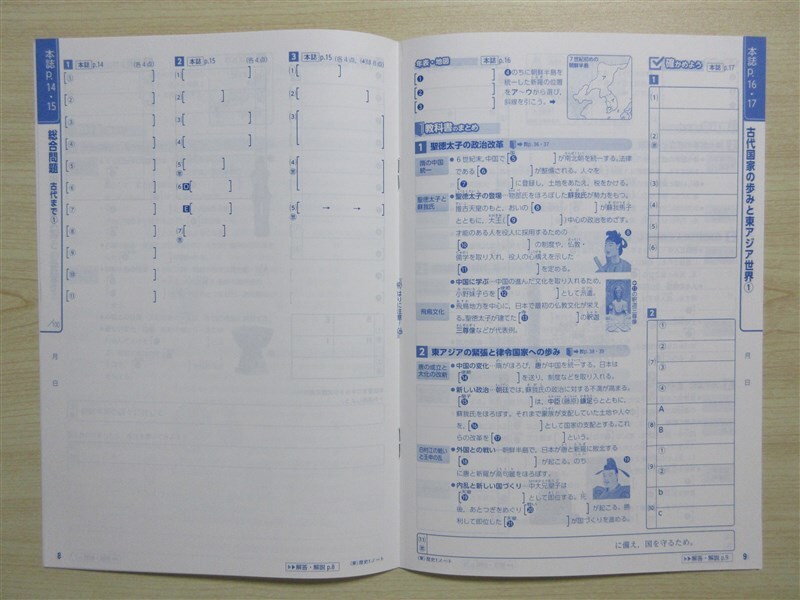 本誌 P.14・15
総合問題 古代まで①
月 日
1 本誌 p.14 (各4点)
①
2
3
4
5
6
7
8
9
10
11
2 本誌 p.15 (各4点)
1
2
3
4
5
6 D
E
7
3 本誌 p.15
1
2
3
4
5 → →
8
▶▶解答・解説 p.8
年表・地図 本誌 p.16
1
2
3
のちに朝鮮半島を
統一した新羅の位置
をア〜ウから選び,
斜線を引こう。➡
7世紀のころの
朝鮮半島
教科書のまとめ
1 聖徳太子の政治改革
隋の中国
統一
●6世紀末,中国で[5 ]が南北朝を統一する。法律
である[6 ]が整備される。人々を
[7 ]に登録し,土地をあたえ,税をかける。
聖徳太子と
蘇我氏
●聖徳太子の登場…物部氏をほろぼした蘇我氏が勢力をもつ。
推古天皇のもと,おいの[8 ]が蘇我馬子
とともに,大王[9 ]中心の政治をめざす。
才能のある人を役人に採用するための
[10 ]の制度や,仏教・
儒学を取り入れ,役人の心構えを示した
[11 ]を定める。
●中国に学ぶ…中国の進んだ文化を取り入れるため,
小野妹子らを[12 ]として派遣。
飛鳥文化
●飛鳥地方を中心に,日本で最初の仏教文化が栄え
る。聖徳太子が建てた[13 ]の釈迦
三尊像などが代表例。
2 東アジアの緊張と律令国家への歩み
唐の成立と
大化の改新
●中国の変化…隋がほろび,唐が中国を統一する。日本は
[14 ]を送り,制度などを取り入れる。
●新しい政治…朝廷では,蘇我氏の政治に対する不満が高まる。
[15 ]は,中臣(藤原)鎌足らとともに,
蘇我氏をほろぼす。それまで豪族が支配していた土地や人々
を,[16 ]として国家の支配とする。これ
らの改革を[17 ]という。
白村江の戦い
と壬申の乱
●外国との戦い…朝鮮半島で,日本が唐と新羅に敗北する
[18 ]が起こる。のち
に唐と新羅が高句麗をほろぼす。
●内乱と新しい国づくり…中大兄皇子は
[19 ]として即位する。死
後,あとつぎをめぐり[20 ]が起こる。勝
利して即位した[21 ]が国づくりを進める。
に備え,国を守るため。
▶▶解答・解説 p.9
9
確かめよう 本誌 p.17
1
1
2
3
4
5
6
2
1
2
3
4
A
B
1
2
a
b
c
本誌 P.16・17
古代国家の歩みと東アジア世界①
月 日